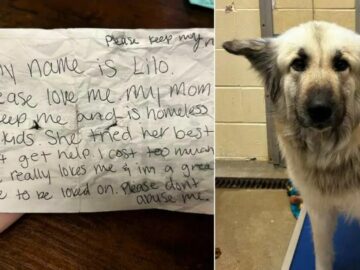 Please keep my n
My name is Lilo.
ease love me my mom
eep me and is homeless
kids. She tried her best
t get help. I cost too much
really loves me & im a grea
e to be loved on. Please don't
abuse me.